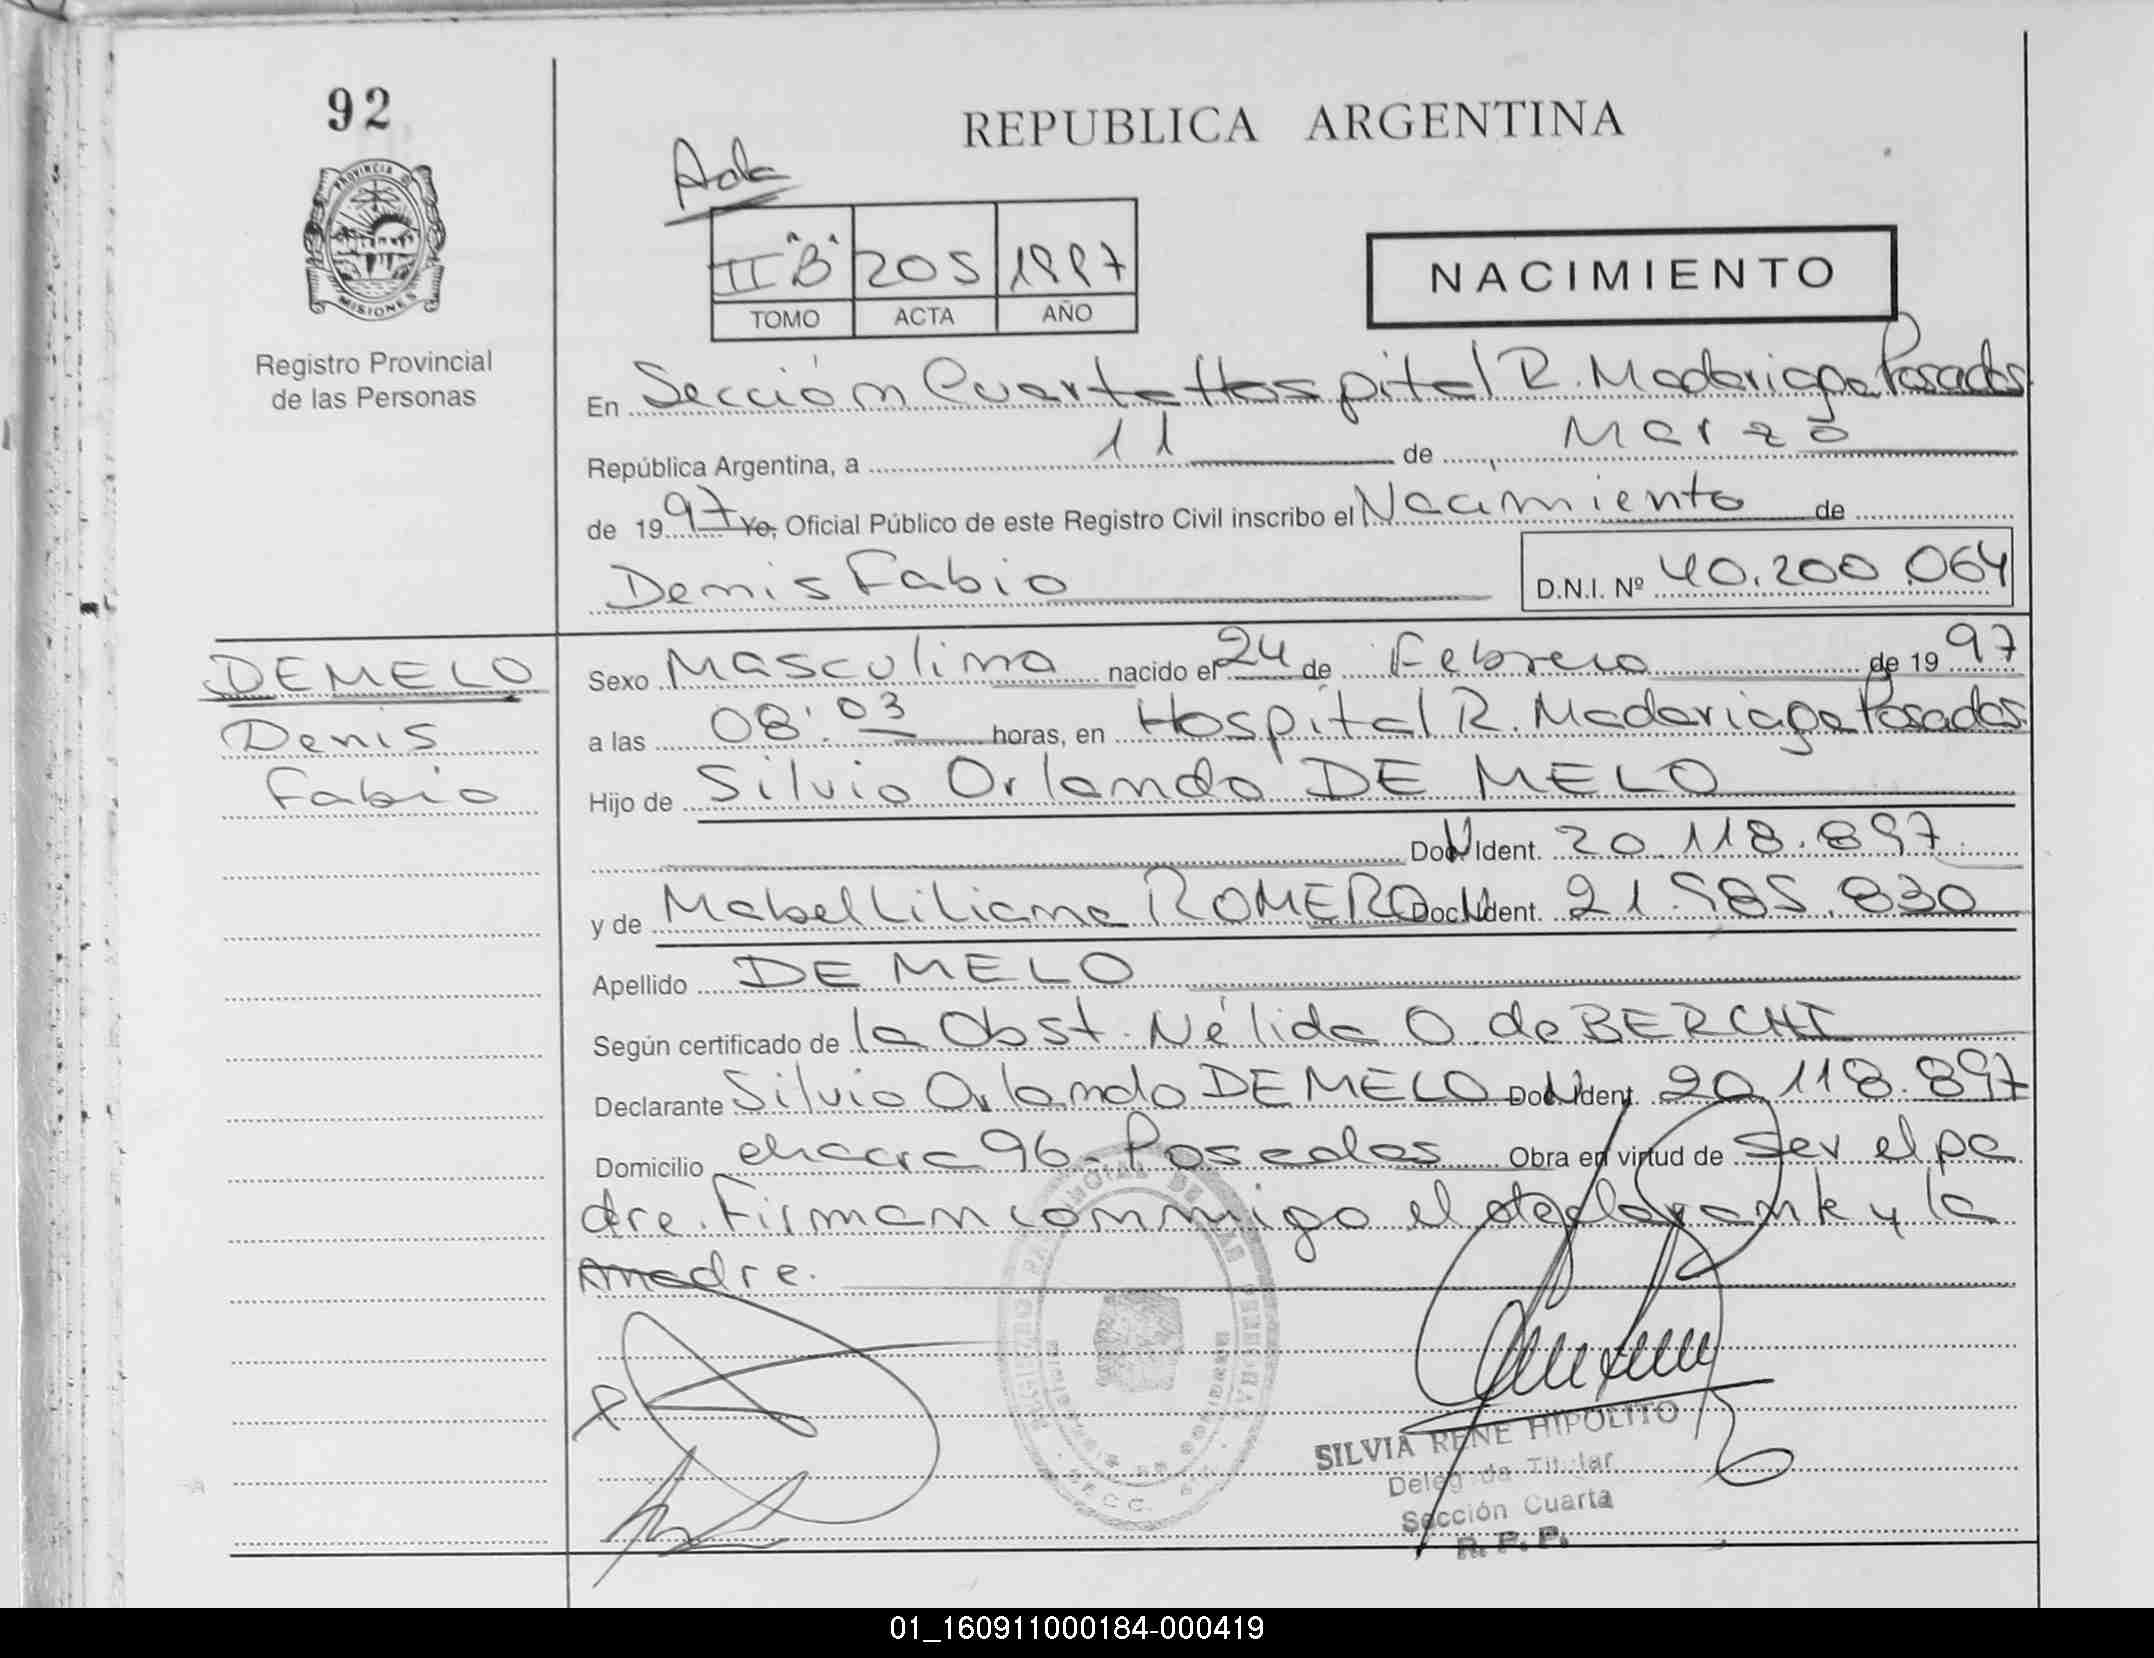 92
REPUBLICA ARGENTINA
PROVINCIA DE
MISIONES
Registro Provincial
de las Personas
II "B" 205 1997
TOMO ACTA AÑO
NACIMIENTO
En Sección Cuarta Hospital R. Madariaga Posadas
República Argentina, a 11 de Marzo
de 1997 Yo, Oficial Público de este Registro Civil inscribo el Nacimiento de
Denis Fabio D.N.I. Nº 40.200.064
DE MELO
Denis
Fabio
Sexo Masculino nacido el 24 de Febrero de 1997
a las 08:03 horas, en Hospital R. Madariaga Posadas
Hijo de Silvio Orlando DE MELO
Doc. Ident. 20.118.897
y de Mabel Liliana ROMERO Doc. Ident. 21.585.830
Apellido DE MELO
Según certificado de la Obst. Nélida O. de BERCHI
Declarante Silvio Orlando DE MELO Doc. Ident. 20.118.897
Domicilio chacra 96 - Posadas Obra en virtud de ser el pa
dre. Firman conmigo el declarante y la
madre.
SILVIA RENE HIPOLITO
Delegada Titular
Sección Cuarta
R. P. P.
01_160911000184-000419